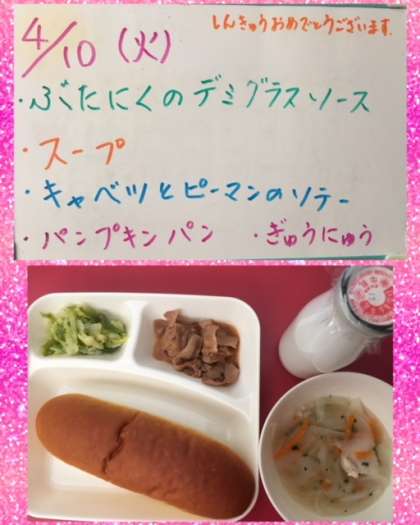 4/10(火)
しんきゅうおめでとうございます.
・ぶたにくのデミグラスソース
・スープ
・キャベツとピーマンのソテー
・パンプキンパン ・ぎゅうにゅう